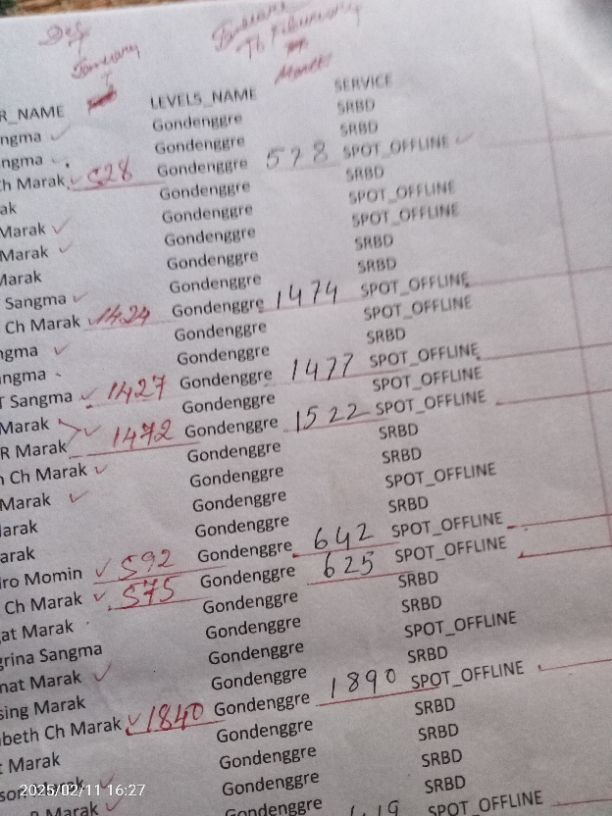 Dec
January
January
To February
March
R_NAME LEVEL5_NAME SERVICE
ngma Gondenggre SRBD
ngma Gondenggre SRBD
Ch Marak 528 Gondenggre 578 SPOT_OFFLINE
ak Gondenggre SRBD
Marak Gondenggre SPOT_OFFLINE
Marak Gondenggre SPOT_OFFLINE
Marak Gondenggre SRBD
Sangma Gondenggre SRBD
Ch Marak 1424 Gondenggre 1474 SPOT_OFFLINE
ngma Gondenggre SPOT_OFFLINE
ngma Gondenggre SRBD
T Sangma 1427 Gondenggre 1477 SPOT_OFFLINE
Marak Gondenggre SPOT_OFFLINE
R Marak 1472 Gondenggre 1522 SPOT_OFFLINE
Ch Marak Gondenggre SRBD
Marak Gondenggre SRBD
arak Gondenggre SPOT_OFFLINE
arak Gondenggre SRBD
iro Momin 592 Gondenggre 642 SPOT_OFFLINE
Ch Marak 575 Gondenggre 625 SPOT_OFFLINE
at Marak Gondenggre SRBD
grina Sangma Gondenggre SRBD
nat Marak Gondenggre SPOT_OFFLINE
sing Marak Gondenggre SRBD
beth Ch Marak 1840 Gondenggre 1890 SPOT_OFFLINE
t Marak Gondenggre SRBD
son Marak Gondenggre SRBD
R Marak Gondenggre SRBD
Gondenggre SRBD
SPOT_OFFLINE
2025/02/11 16:27